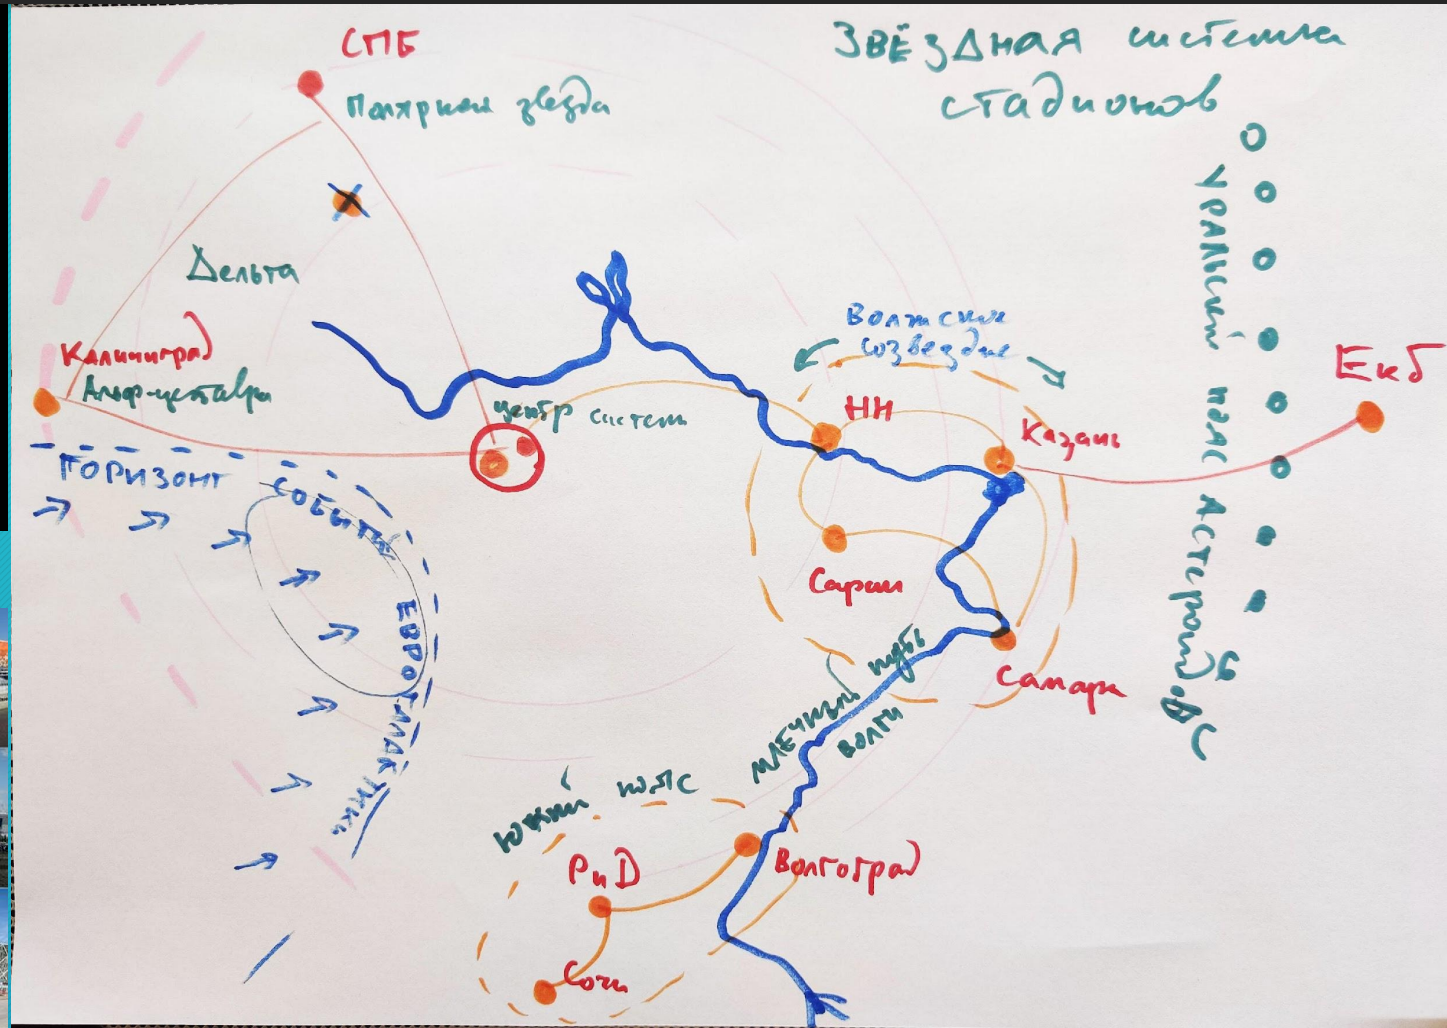 ЗВЁЗДНАЯ система
стадионов
СПБ
Полярная звезда
Дельта
Калининград
Альфа-центавра
центр систем
ГОРИЗОНТ СОБЫТИЙ
ЕВРОГАЛАКТИКИ
Волжское
созвездие
НН
Казань
Саран
Самара
Екб
УРАЛЬСКИЙ ПОЯС АСТЕРОИДОВ
МЛЕЧНЫЙ путь
ВОЛГИ
Южный пояс
РнД
Волгоград
Сочи